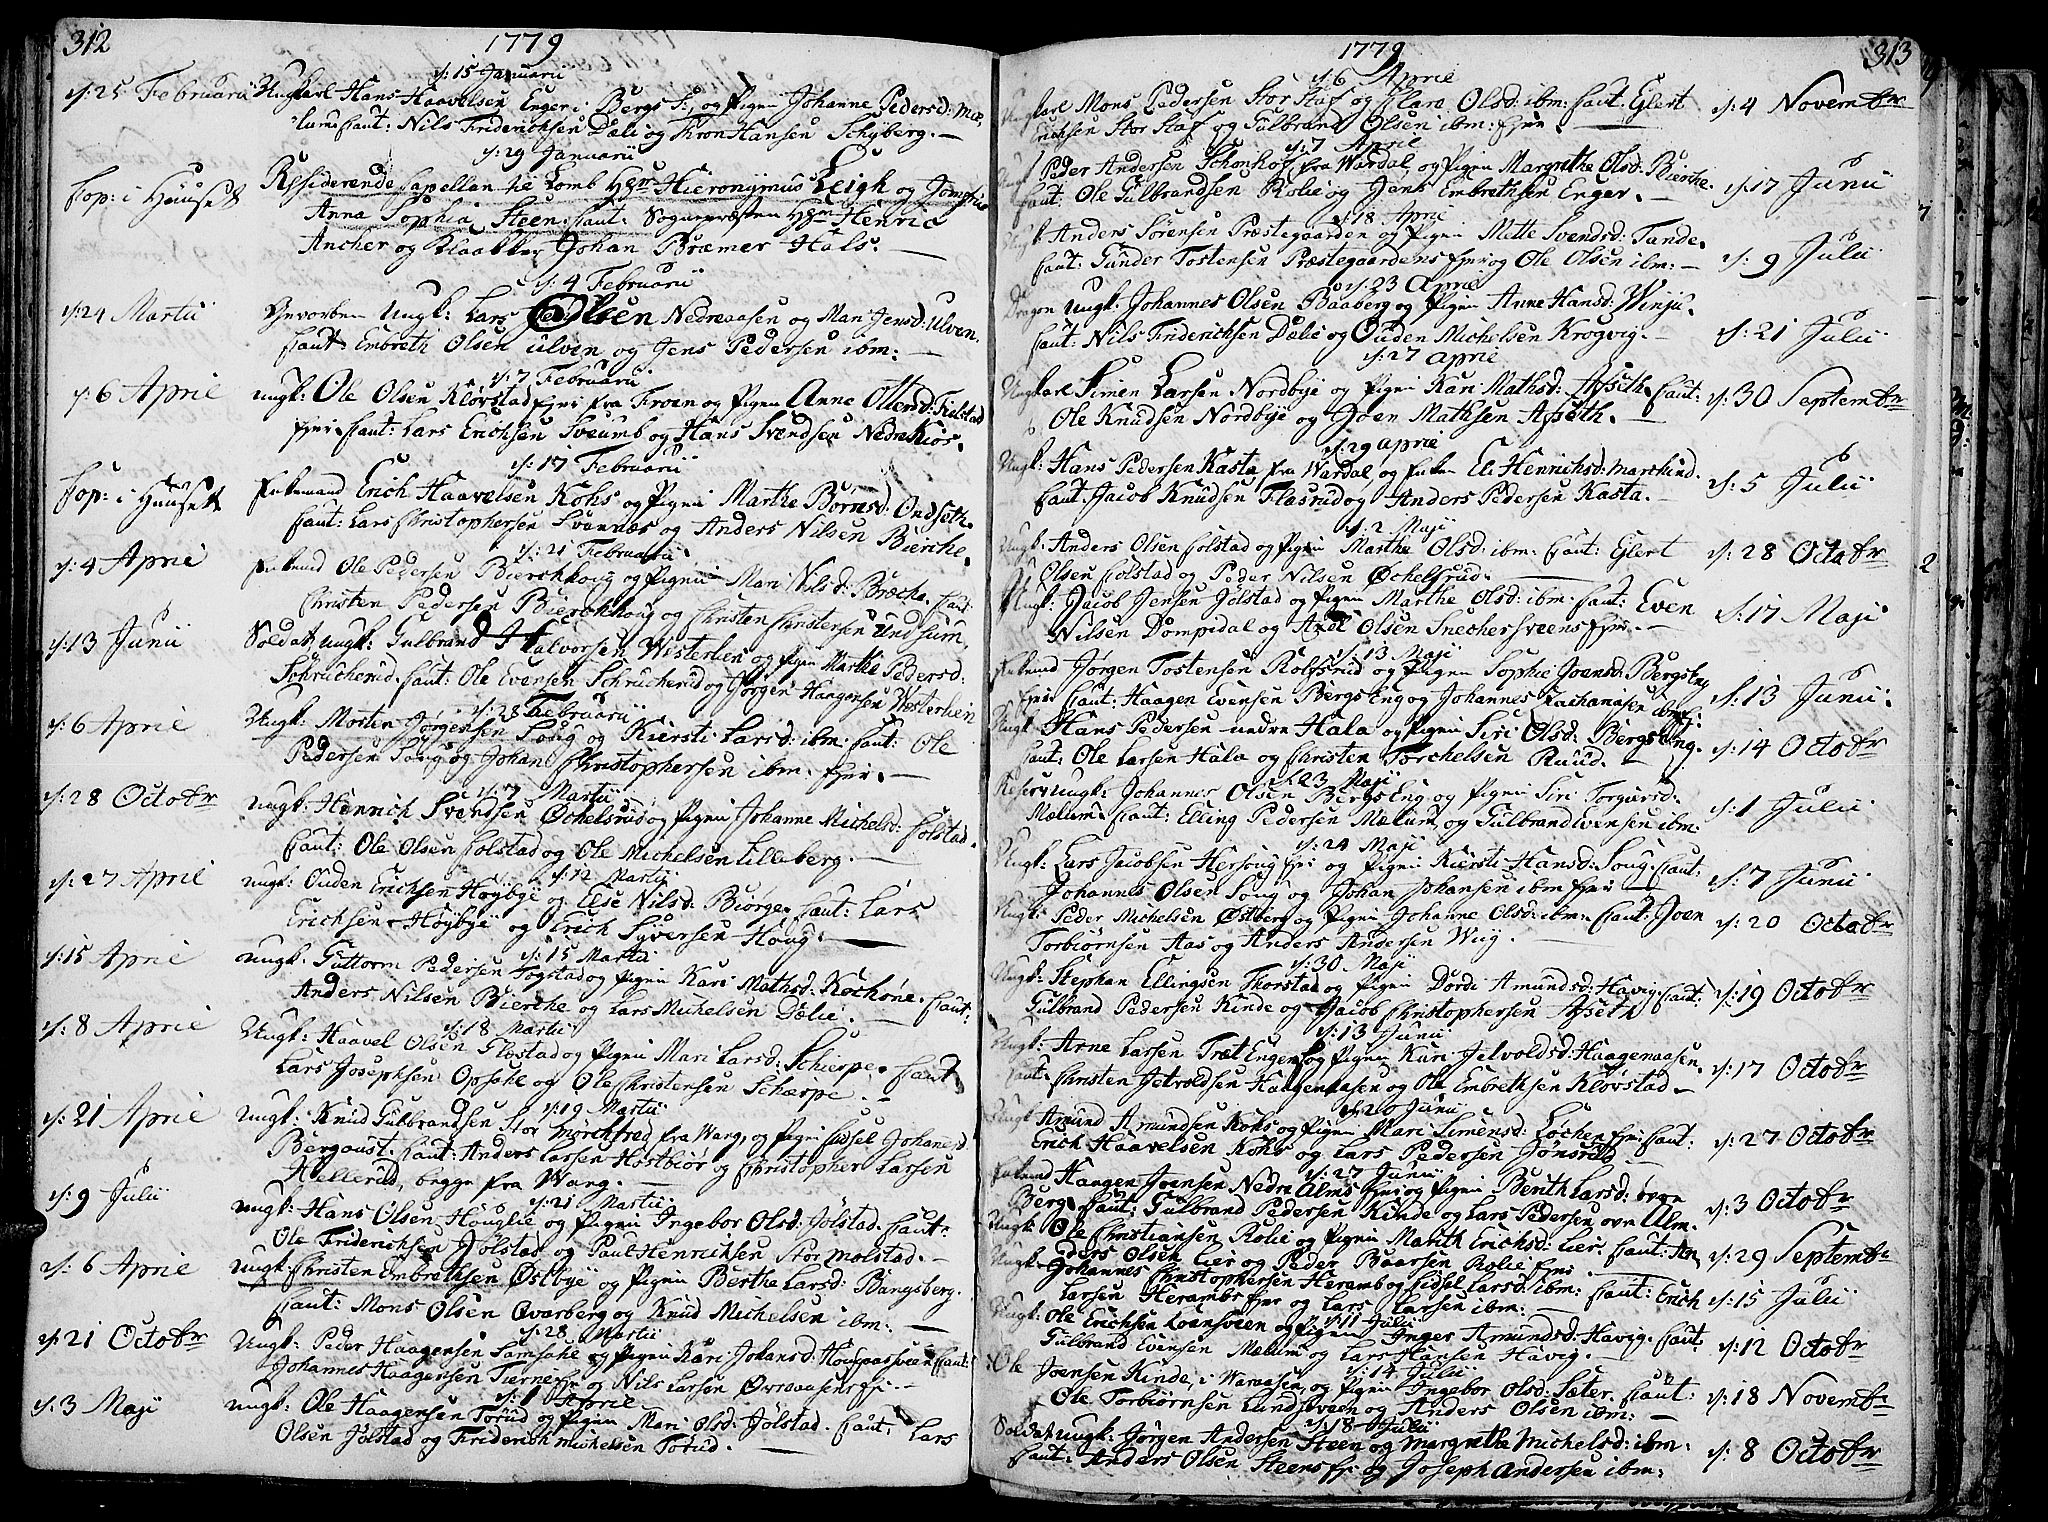 312
1779
d: 15 Januarii
d: 25 Februarii Ungkarl Hans Haavelsen Enger i Bergs F: og Pigen Johanne Pedersd: Mæ,
lum Caut: Nils Friderichsen Dæli og Hans Hansen Schÿberg.
d: 29 Januarii
Cop: i Hüüset Residerende Capellan til Lomb Hr Hieronÿmus Leigh og Jomfrue
Anna Sophia Steen. Caut: Sognepræsten Hr Henric
Ancher og Klokker Johan Bræmer Hals.
d: 4 Februarii
d: 24 Martii Gevorben Ungk: Lars Olsen Nedreaasen og Mari Jensd: Ulven.
Caut: Embreth Olsen Ulvin og Jens Pedersen ibm:
d: 7 Februarii
d: 6 April Ungk: Ole Olsen Kløvstad Ejer fra Froen og Pigen Anne Ottersd: Fielstad
Ejer. Caut: Lars Erichsen Sveumb og Hans Svendsen Nedre Kios.
d: 17 Februarii
Cop: i Hüüset Enkemand Erich Haavelsen Kohs og Pigen Marthe Børnsd: Ondseth.
Caut: Lars Christophersen Svennæs og Anders Nilsen Bierche.
d: 21 Februarii
d: 4 April Enkemd Ole Pedersen Bierchhoug og Pigen Mari Nilsd: Bræche. Caut:
Christen Pedersen Bierchhoug og Christen Christensen Undsum,
d: 13 Junii Soldat, Ungk: Gulbrand Halvorsen Westerlien og Pigen Marthe Pedersd:
Schrucherud. Caut: Ole Evensen Schrucherud og Jørgen Haagensen Westerlien
d: 28 Februarii
d: 6 April Ungk: Morten Jørgensen Soug og Kiersti Larsd: ibm: Caut: Ole
Pedersen Soug og Johan Christophersen ibm: Ejer.
d: 7 Martii
d: 28 Octobr Ungk: Henrich Svendsen Øchelsrud og Pigen Johanne Michelsd: Colstad.
Caut: Ole Olsen Colstad og Ole Michelsen Lilleberg.
d: 12 Martii
d: 27 April Ungk: Ouden Erichsen Høÿbÿe og Else Nilsd: Biørge. Caut: Lars
Erichsen Høÿbÿe og Erich Syversen Houg.
d: 15 Martii
d: 15 April Ungk: Guttorm Pedersen Fogstad og Pigen Kari Mathsd: Kochøne. Caut:
Anders Nilsen Bierche og Lars Michelsen Dælie.
d: 18 Martii
d: 8 April Ungk: Haavel Olsen Flostad og Pigen Mari Larsd: Schierpe. Caut
Lars Josephsen Opsahl og Ole Christensen Scharpe.
d: 19 Martii
d: 21 April Ungk: Knud Gulbrandsen Stor Mørchfred fra Wang, og Pigen Eidsel Johanesd:
Bergoust. Caut: Anders Larsen Hostbiør og Christopher Larsen
Hellerud, begge fra Wang.
d: 21 Martii
d: 9 Julii Ungk: Hans Olsen Houglie og Pigen Ingebor Olsd: Jølstad. Caut:
Ole Friderichsen Jølstad og Paul Henrichsen Stormolstad.
d: 6 April Ungk: Christen Embrethsen Østbÿe og Pigen Berthe Larsd: Bangsberg.
Caut: Mons Olsen Qvarberg og Knud Michelsen ibm:
d: 28 Martii
d: 21 Octobr Ungk: Peder Haagensen Samsahl og Pigen Kari Johansd: Caut:
Johannes Haagensen Tierne og Nils Larsen Øvreaasens Ej:
d: 1 April
d: 3 Maji Ungk: Ole Haagensen Torud og Pigen Mari Olsd: Jølstad. Caut: Lars
Olsen Jølstad og Friderich Michelsen Torud.
313
1779
d: 6 April
Ungkarl Mons Pedersen Stor Staf og Clara Olsd: ibm: Caut: Eylert d: 4 Novembr
Erichsen Stor Staf og Gulbrand Olsen ibm: Ejer.
d: 7 April
Ungk Peder Andersen Schonhof fra Wardal, og Pigen Margrethe Olsd: Bierche. d: 17 Junii
Caut: Ole Gulbrandsen Rolie og Jens Embrethsen Enger.
d: 18 April
Ungk: Anders Sørensen Præstegaarden og Pigen Mette Svendsd: Tande. d: 9 Julii
Caut: Gunder Tostensen Præstegaardens Ejer og Ole Olsen ibm:
d: 23 April
Dragon Ungk: Johannes Olsen Baaberg og Pigen Anne Hansd: Winju. d: 21 Julii
Caut: Nils Friderichsen Dæli og Ouden Michelsen Krogvig.
d: 27 april
Ungkarl Simen Larsen Nordbÿe og Pigen Kari Mathsd: Afseth. Caut: d: 30 Septembr
Ole Knudsen Nordbÿe og Joen Mathsen Afseth.
d: 29 april
Ungk: Hans Pedersen Kasta fra Wardal og Enken Eli Henrichsd: Marchind. d: 5 Julii
Caut: Jacob Knudsen Flasrud og Anders Pedersen Kasta.
d: 2 Maji
Ungk: Anders Olsen Colstad og Pigen Marthe Olsd: ibm: Caut: Eylert d: 28 Octobr
Olsen Colstad og Peder Nilsen Øchelsrud.
Ungk: Jacob Jensen Jølstad og Pigen Marthe Olsd: ibm: Caut: Even d: 17 Maji
Nilsen Dompidal og Axel Olsen Snechersveens Ejer.
d: 13 Maji
Enkemd Jørgen Tostensen Rolfsrud og Pigen Sophie Joensd: Bergseng d: 13 Junii
Ejer Caut: Haagen Evensen Bergseng og Johannes Zachariasen ibm Ej:
Ungk Hans Pedersen nedre Hala og Pigen Siri Olsd: Bergseng. d: 14 Octobr
Caut: Ole Larsen Hala og Christen Torchelsen Ruud.
d: 23 Maji
Reserv Ungk: Johannes Olsen Bergs Eng og Pigen Siri Torgersd: d: 1 Julii
Mælum. Caut: Elling Pedersen Mælum og Gulbrand Evensen ibm:
d: 24 Maji
Ungk: Lars Jacobsen Hersoug Ejer og Pigen Kiersti Hansd: Soug. Caut: d: 7 Junii
Johannes Olsen Soug og Johan Johansen ibm Ejer
Ungk: Peder Michelsen Østberg og Pigen Johanne Olsd: ibm: Caut: Joen d: 20 Octobr
Torbiørnsen Aas og Anders Andersen Wiig.
d: 30 Maji
Ungk: Stephan Ellingsen Thorstad og Pigen Dordi Amundsd: Havig. Caut: d: 19 Octobr
Gulbrand Pedersen Kinde og Jacob Christophersen Afseth
d: 13 Junii
Ungk: Arne Larsen Træt Engen og Pigen Kari Jetvoldsd: Haagenaasen. d: 17 Octobr
Caut: Christen Jetvoldsen Haagenaasen og Ole Embrethsen Kløvstad
d: 20 Junii
Ungk Amund Amundsen Kohs og Pigen Mari Simensd: Løchen Ejer Caut: d: 27 Octobr
Erich Haavelsen Kohs og Lars Pedersen Jønsrud
d: 27 Junii
Enkemd Haagen Joensen Nedre Alms Ejer og Pigen Berith Larsd: øvre d: 3 Octobr
Berg. Caut: Gulbrand Pedersen Kinde og Lars Pedersen øvre Alm.
Ungk: Ole Christiansen Rolie og Pigen Marith Erichsd: Lier. Caut: An, d: 29 Septembr
ders Olsen Lier og Peder Baarsen Rolie Ejer
Ungk: Johannes Christophersen Heramb og Eidsel Larsd: ibm: Caut: Erich d: 15 Julii
Larsen Herambs Ejer og Lars Larsen ibm:
d: 11 Julii
Ungk: Ole Erichsen Loensveen og Pigen Inger Amundsd: Havig. Caut: d: 12 Octobr
Gulbrand Evensen Mælum og Lars Hansen Havig.
d: 14 Julii
Ole Joensen Kinde, i Waraasen, og Pigen Ingebor Olsd: Sæter. Caut: d: 18 Novembr
Ole Torbiørnsen Lundsveen og Anders Olsen ibm:
d: 18 Julii
Soldat Ungk: Jørgen Andersen Steen og Margrethe Michelsd: ibm: d: 8 Octobr
Caut: Anders Olsen Steens Ej: og Joseph Andersen ibm: